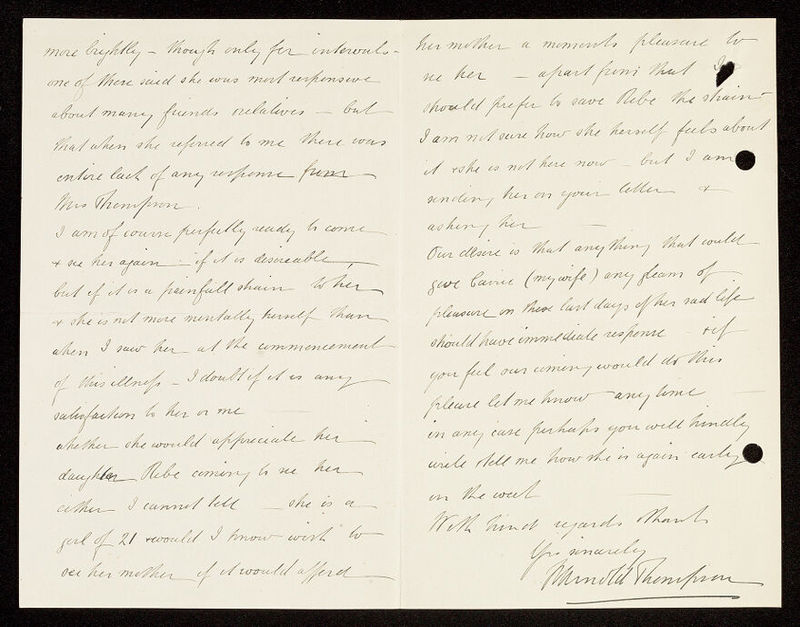 more brightly – though only for intervals –
one of these said she was most responsive
about many friends & relatives – but
that when she referred to me there was
entire lack of any response from
Mrs Thompson.
I am of course perfectly ready to come
& see her again – if it is desireable,
but if it is a painfull strain to her
& she is not more mentally herself than
when I saw her at the commencement
of this illness – I doubt if it is any
satisfaction to her or me
whether she would appreciate her
daughter Rebe coming to see her
either I cannot tell – she is a
girl of 21 & would I know wish to
see her mother if it would afford
her mother a moments pleasure to
see her – apart from that I
should prefer to save Rebe the strain –
I am not sure how she herself feels about
it & she is not here now – but I am
sending her on your letter &
asking her
Our desire is that anything that could
give Carrie (my wife) any gleam of
pleasure in these last days of her sad life
should have immediate response – & if
you feel our coming would do this
please let me know any time –
in any case perhaps you will kindly
write & tell me how she is again early
in the week –
With kind regards & thanks
Yrs sincerely
Arnold Thompson